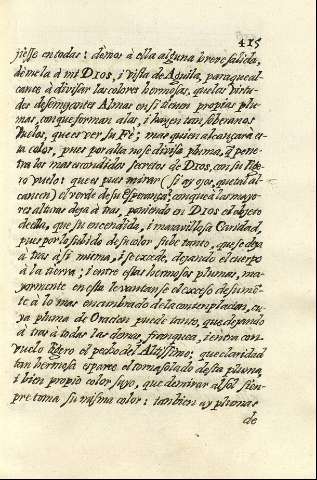 415
jesse en todas: demos à ella alguna breve salida,
demela à mi DIOS, i vista de Aguila, para que al-
cance à divisar las colores hermosas, que las virtu-
des de semejantes Almas en si tienen propias plu-
mas, con que forman alas, i hazen tan soberanos
vuelos, que es ver su Fè; mas quien alcançarà es-
ta color, pues por alta no se divisa pluma, q̃ pene-
tra los mas escondidos secretos de DIOS, con su
ro vuelo: que es pues mirar (si ay ojos, que tal al-
cancen) el verde de su Esperança, con que à las mayo-
res alturas deja atras, poniendo en DIOS el objeto
della, que su encendida, i maravillosa Caridad,
pues por lo subido de su color sube tanto, que se deja
atras à si misma, i se excede, dejando el cuerpo
à la tierra; i entre estas hermosas plumas, ma-
yormente en esta levantanse el exceso de su mẽ-
te à lo mas encumbrado de la contemplacion, cu-
ya pluma de Oracion puede tanto, que dejando
atras à todas las demas, franquea, i entra con
vuelo ligero el pecho del Altissimo; que claridad
tan hermosa esparce el tornasolado desta pluma
i bien propio color suyo, que de mirar al sol siem-
pre toma su misma color: tambien ay plumas
de